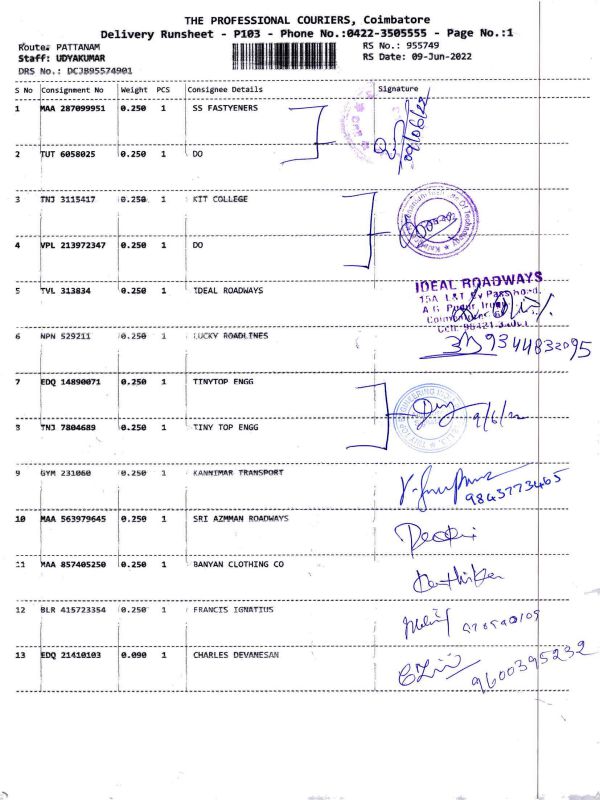 THE PROFESSIONAL COURIERS, Coimbatore
Delivery Runsheet - P103 - Phone No.:0422-3505555 - Page No.:1
Route: PATTANAM RS No.: 955749
Staff: UDYAKUMAR RS Date: 09-Jun-2022
DRS No.: DCJB95574901
S No Consignment No Weight PCS Consignee Details Signature
1 MAA 287099951 0.250 1 SS FASTYENERS
09/06/22
2 TUT 6058025 0.250 1 DO
3 TNJ 3115417 0.250 1 KIT COLLEGE
4 VPL 213972347 0.250 1 DO
5 TVL 313834 0.250 1 IDEAL ROADWAYS
IDEAL ROADWAYS
15A L&T By Pass
6 NPN 529211 0.250 1 LUCKY ROADLINES
9344832095
7 EDQ 14890071 0.250 1 TINYTOP ENGG
9/6/22
8 TNJ 7804689 0.250 1 TINY TOP ENGG
9 GYM 231060 0.250 1 KANNIMAR TRANSPORT
9843773465
10 MAA 563979645 0.250 1 SRI AZMMAN ROADWAYS
11 MAA 857405250 0.250 1 BANYAN CLOTHING CO
12 BLR 415723354 0.250 1 FRANCIS IGNATIUS
13 EDQ 21410103 0.090 1 CHARLES DEVANESAN
9600395232